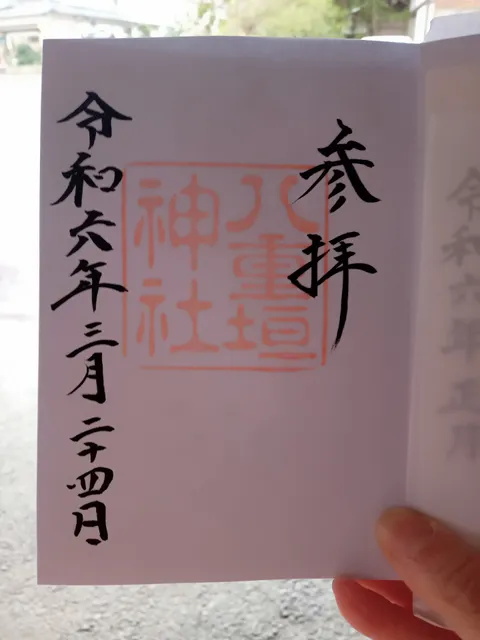 参拝
八重垣
神社
令和六年三月二十四日
令和六年正月